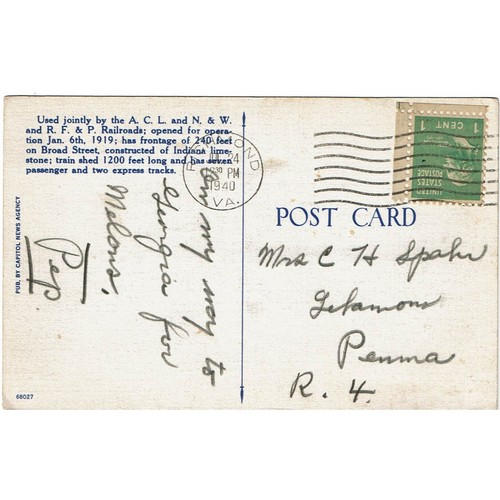 Used jointly by the A. C. L. and N. & W.
and R. F. & P. Railroads; opened for opera-
tion Jan. 6th, 1919; has frontage of 240 feet
on Broad Street, constructed of Indiana lime-
stone; train shed 1200 feet long and has seven
passenger and two express tracks.
RICHMOND
JUL 24
1230 PM
1940
VA.
1 CENT 1
UNITED
STATES
POSTAGE
POST CARD
PUB. BY CAPITOL NEWS AGENCY
am my way to
Georgia for
Melons.
Pep
Mrs C H Spahr
Penma
R. 4.
68027